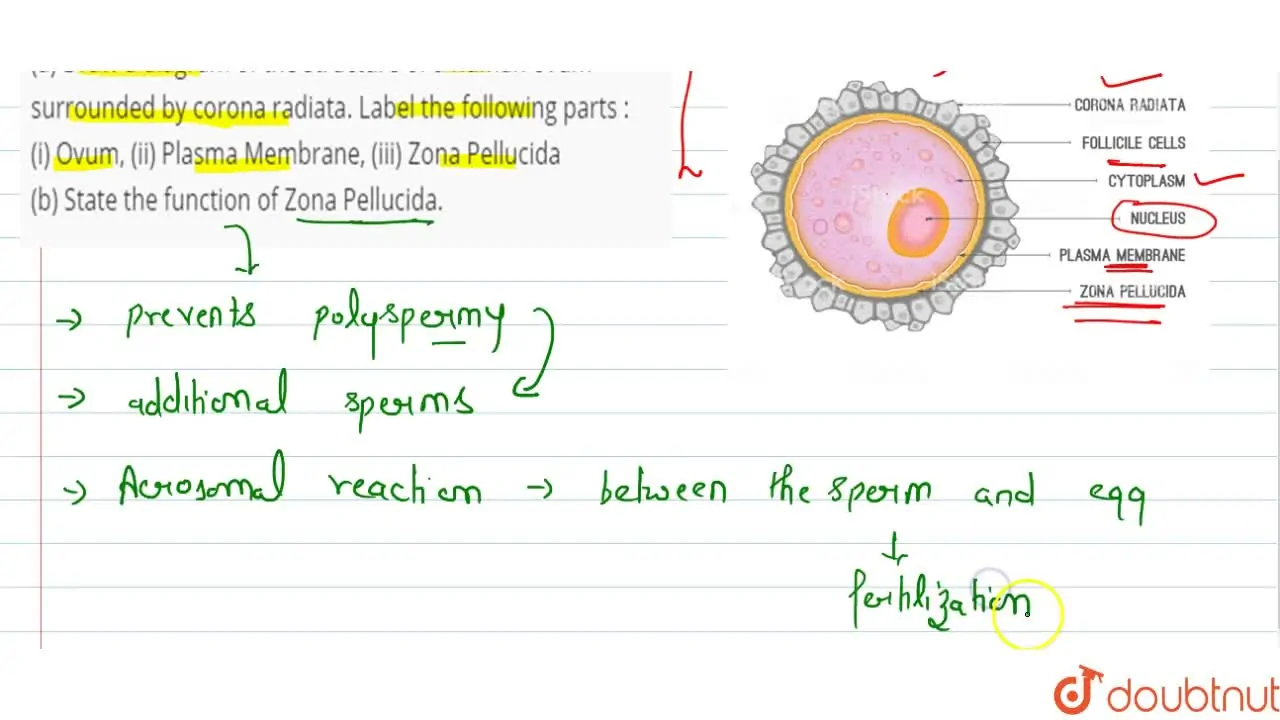 surrounded by corona radiata. Label the following parts :
(i) Ovum, (ii) Plasma Membrane, (iii) Zona Pellucida
(b) State the function of Zona Pellucida.
→ prevents polyspermy
→ additional sperms
→ Acrosomal reaction → between the sperm and egg
↓
fertilization
CORONA RADIATA
FOLLICILE CELLS
CYTOPLASM
NUCLEUS
PLASMA MEMBRANE
ZONA PELLUCIDA
iStock
doubtnut